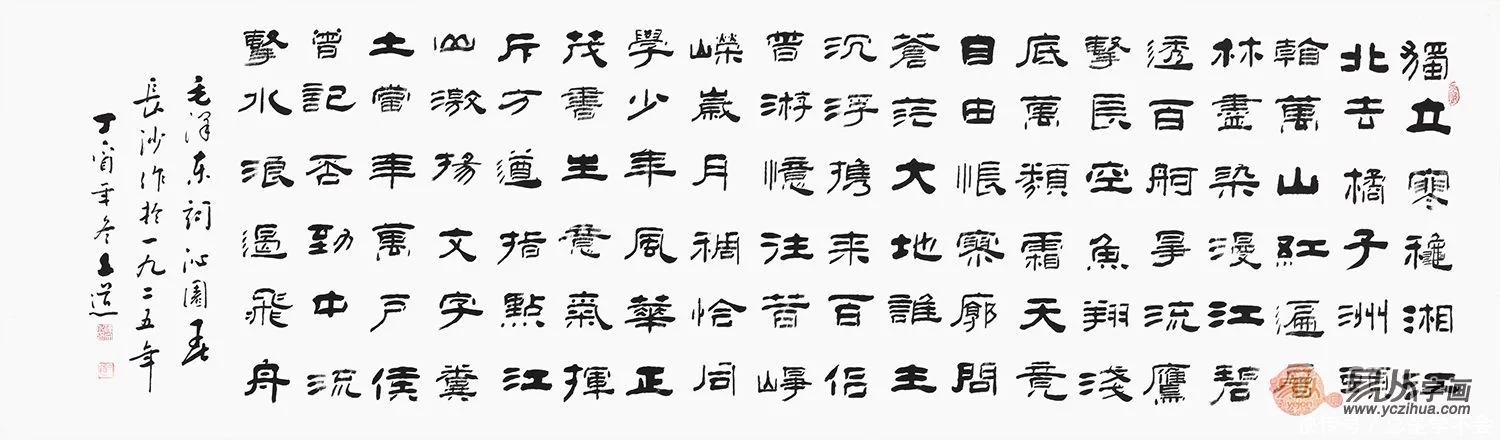 獨立寒穐湘江
北去橘子洲頭
看萬山紅遍層
林盡染漫江碧
透百舸爭流鷹
擊長空魚翔淺
底萬類霜天竟
自由悵寥廓問
蒼茫大地誰主
沉浮携来百侶
曾游憶往昔崢
嶸歲月稠恰同
學少年風華正
茂書生意氣揮
斥方遒指點江
山激揚文字糞
土當年萬户侯
曾記否到中流
擊水浪遏飛舟
毛澤东詞沁園春
長沙作於一九二五年
丁酉年冬
易从字画
www.yczihua.com